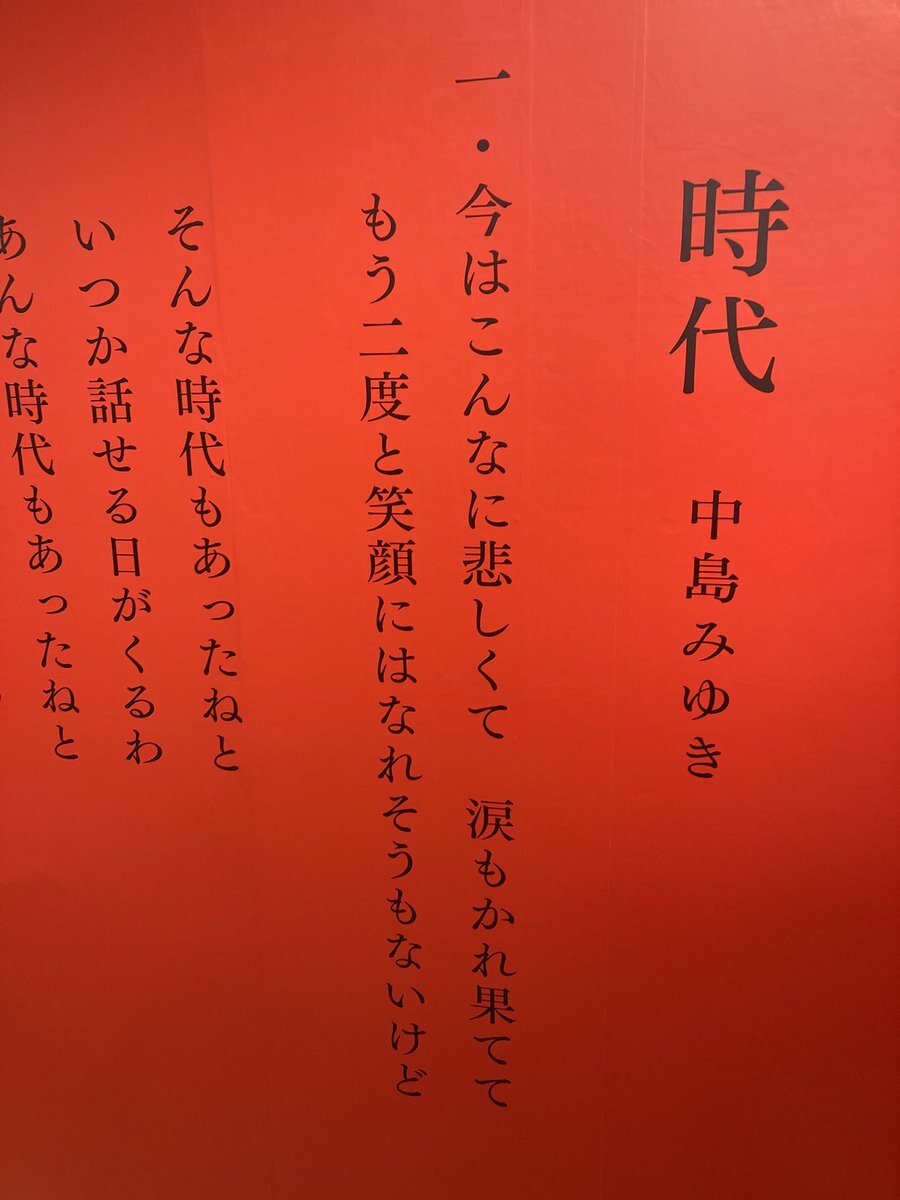 時代 中島みゆき
一・今はこんなに悲しくて 涙もかれ果てて
もう二度と笑顔にはなれそうもないけど
そんな時代もあったねと
いつか話せる日がくるわ
あんな時代もあったねと